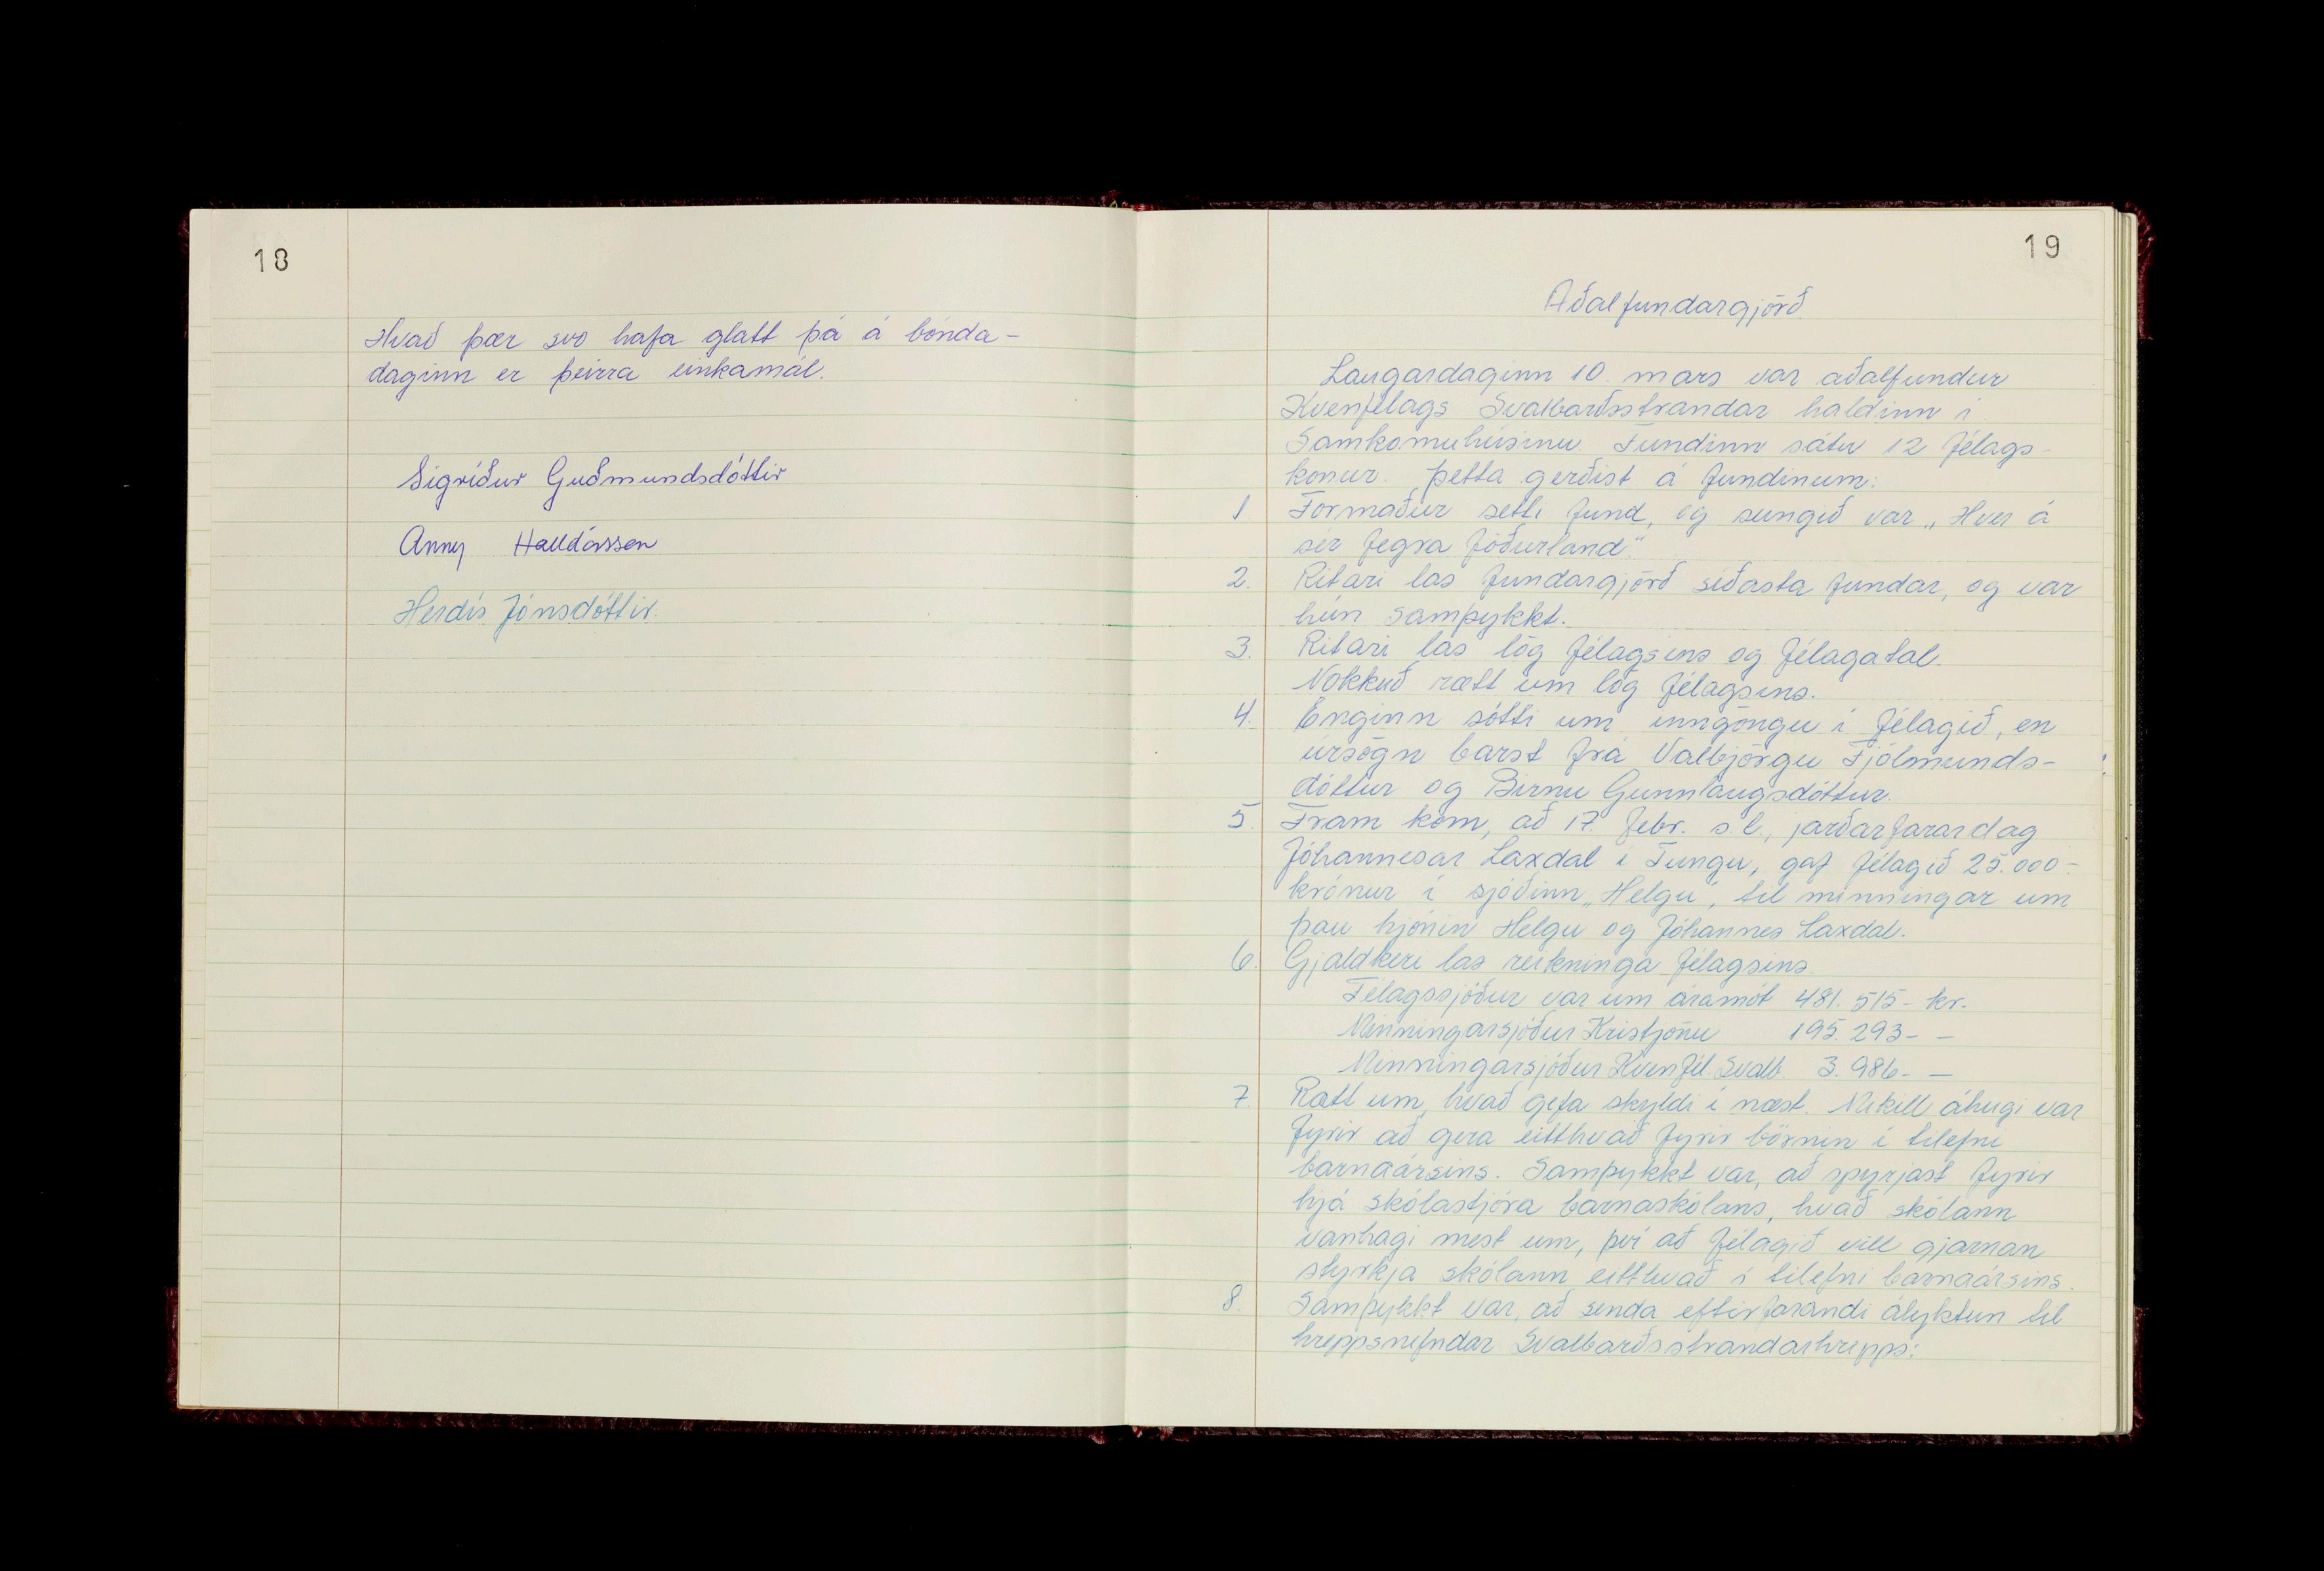 18
Hvað þær svo hafa glatt þá á bónda-
daginn er þeirra einkamál.
Sigríður Guðmundsdóttir
Anny Halldórssen
Herdís Jónsdóttir.
19
Aðalfundargjörð
Laugardaginn 10. mars var aðalfundur
Kvenfélags Svalbarðsstrandar haldinn í
Samkomuhúsinu Fundinn sátu 12 félags-
konur. Þetta gerðist á fundinum:
1 Formaður setti fund, og sungið var „Hver á
sér fegra föðurland".
2. Ritari las fundargjörð síðasta fundar, og var
hún samþykkt.
3. Ritari las lög félagsins og félagatal.
Nokkuð rætt um lög félagsins.
4. Enginn sótti um inngöngu í félagið, en
úrsögn barst frá Valbjörgu Fjólmunds-
dóttur og Birnu Gunnlaugsdóttur.
5. Fram kom, að 17. febr. s.l., jarðarfarardag
Jóhannesar Laxdal í Tungu, gaf félagið 25.000-
krónur í sjóðinn „Helgu", til minningar um
þau hjónin Helgu og Jóhannes Laxdal.
6. Gjaldkeri las reikninga félagsins
Félagssjóður var um áramót 481.515- kr.
Minningarsjóður Kristjönu 195.293- -
Minningarsjóður Kvenfél. Svalb. 3.986- -
7. Rætt um, hvað gefa skyldi í næst. Mikill áhugi var
fyrir að gera eitthvað fyrir börnin í tilefni
barnaársins. Samþykkt var, að spyrjast fyrir
hjá skólastjóra barnaskólans, hvað skólann
vanhagi mest um, því að félagið vill gjarnan
styrkja skólann eitthvað í tilefni barnaársins.
8. Samþykkt var, að senda eftirfarandi ályktun til
hreppsnefndar Svalbarðsstrandarhrepps: